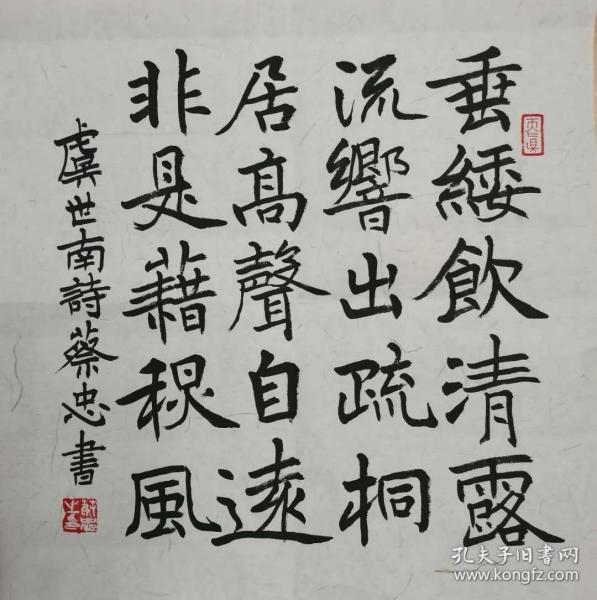 垂緌飲清露
流響出疏桐
居高聲自遠
非是藉秋風
虞世南詩蔡忠書
孔夫子旧書网
www.kongfz.com